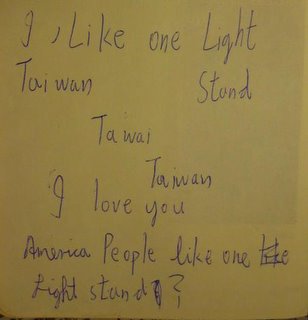 I, Like one Light
Taiwan Stand
Tawai
Taiwan
I love you
America People like one
Light stand?